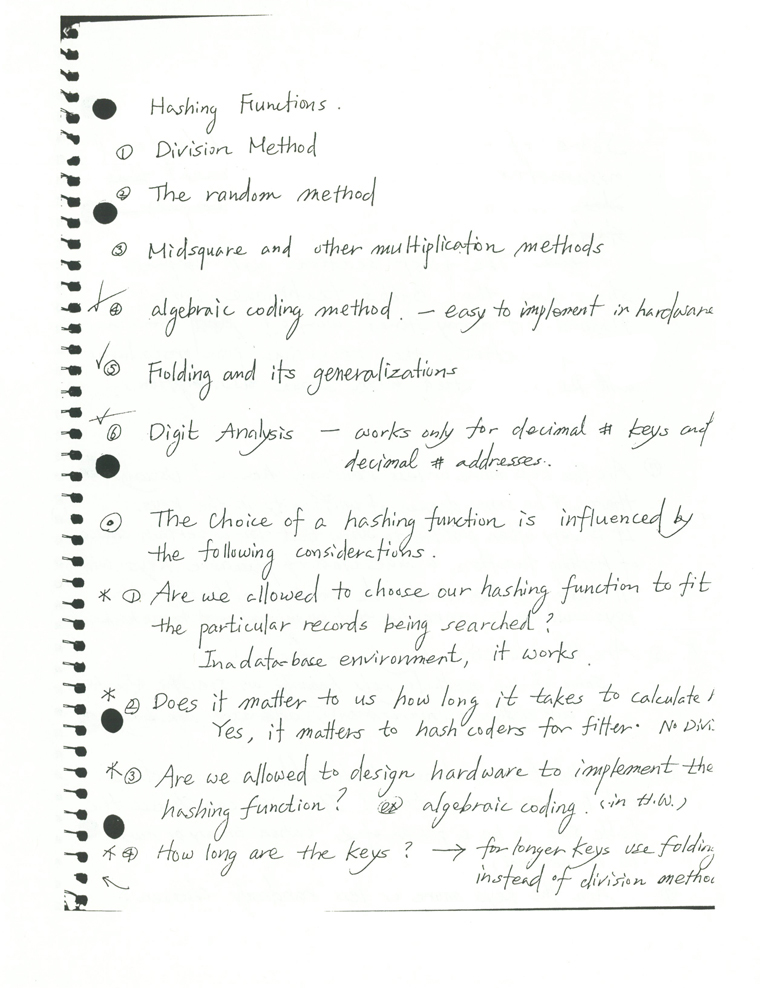 Hashing Functions.
① Division Method
② The random method
③ Midsquare and other multiplication methods
④ algebraic coding method. — easy to implement in hardware
⑤ Folding and its generalizations
⑥ Digit Analysis — works only for decimal # keys and
decimal # addresses.
The choice of a hashing function is influenced by
the following considerations.
* ① Are we allowed to choose our hashing function to fit
the particular records being searched?
In a data-base environment, it works.
* ② Does it matter to us how long it takes to calculate
Yes, it matters to hash coders for filter. No Divi
* ③ Are we allowed to design hardware to implement the
hashing function? ex algebraic coding. (in H.W.)
* ④ How long are the keys? → for longer keys use folding
instead of division metho